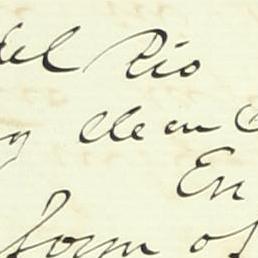 del Rio
clean
En
form of